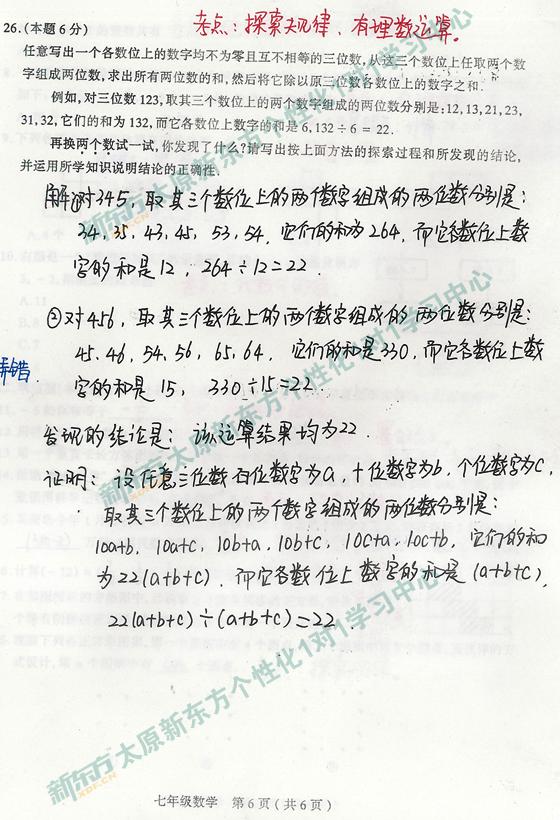 考点：探索规律、有理数运算。
26.(本题6分)
任意写出一个各数位上的数字均不为零且互不相等的三位数,从这三个数位上任取两个数
字组成两位数,求出所有两位数的和,然后将它除以原三位数各数位上的数字之和.
例如,对三位数123,取其三个数位上的两个数字组成的两位数分别是:12,13,21,23,
31,32,它们的和为132,而它各数位上数字的和是6,132÷6=22.
再换两个数试一试,你发现了什么?请写出按上面方法的探索过程和所发现的结论,
并运用所学知识说明结论的正确性.
解①对345，取其三个数位上的两个数字组成的两位数分别是：
34, 35, 43, 45, 53, 54, 它们的和为264, 而它各数位上数
字的和是12, 264÷12=22.
②对456，取其三个数位上的两个数字组成的两位数分别是：
45, 46, 54, 56, 65, 64, 它们的和是330, 而它各数位上数
字的和是15, 330÷15=22.
发现的结论是：该运算结果均为22.
证明：设任意三位数百位数字为a, 十位数字为b, 个位数字为c,
取其三个数位上的两个数字组成的两位数分别是：
10a+b, 10a+c, 10b+a, 10b+c, 10c+a, 10c+b, 它们的和
为22(a+b+c), 而它各数位上数字的和是(a+b+c),
22(a+b+c)÷(a+b+c)=22.
新东方太原新东方个性化1对1学习中心
XDF.CN
七年级数学 第6页(共6页)